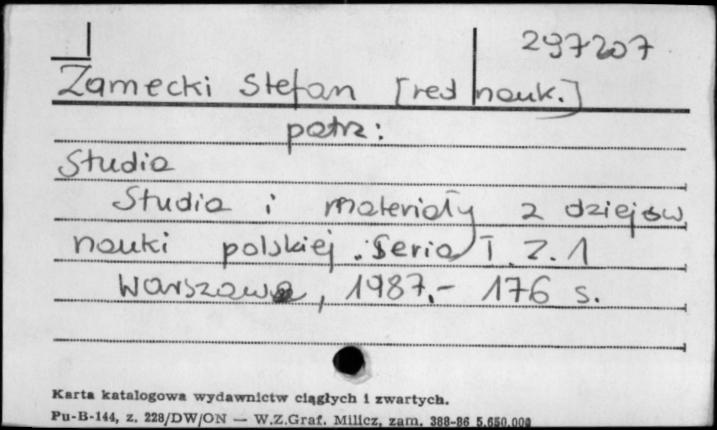 297207
Zamecki Stefan [red nauk.]
patrz:
Studia
Studia i materiały z dziejów
nauki polskiej. Seria I z. 1
Warszawa, 1987.- 176 s.
Karta katalogowa wydawnictw ciągłych i zwartych.
Pu-B-144, z. 228/DW/ON — W.Z.Graf. Milicz, zam. 388-86 5.650.000